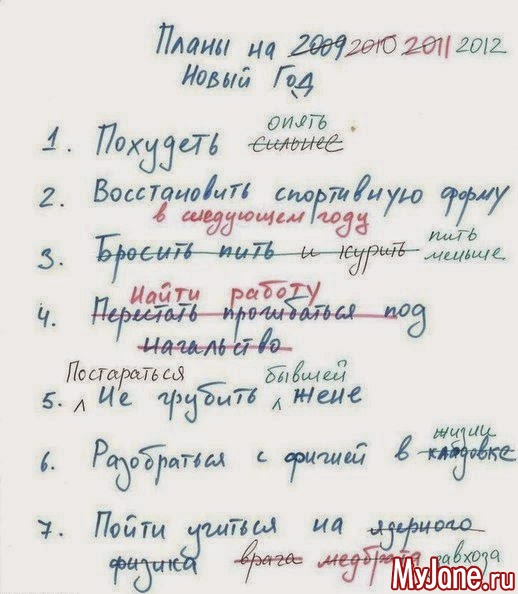 Планы на 2009 2010 2011 2012
Новый Год
опять
1. Похудеть сильнее
2. Восстановить спортивную форму
в следующем году
пить
3. Бросить пить и курить меньше
Найти работу
4. Перестать прогибаться под
начальство
Постараться бывшей
5. Не грубить жене
жизни
6. Разобраться с фигнёй в кладовке
7. Пойти учиться на ядерного
физика врача медбрата завхоза
MyJane.ru